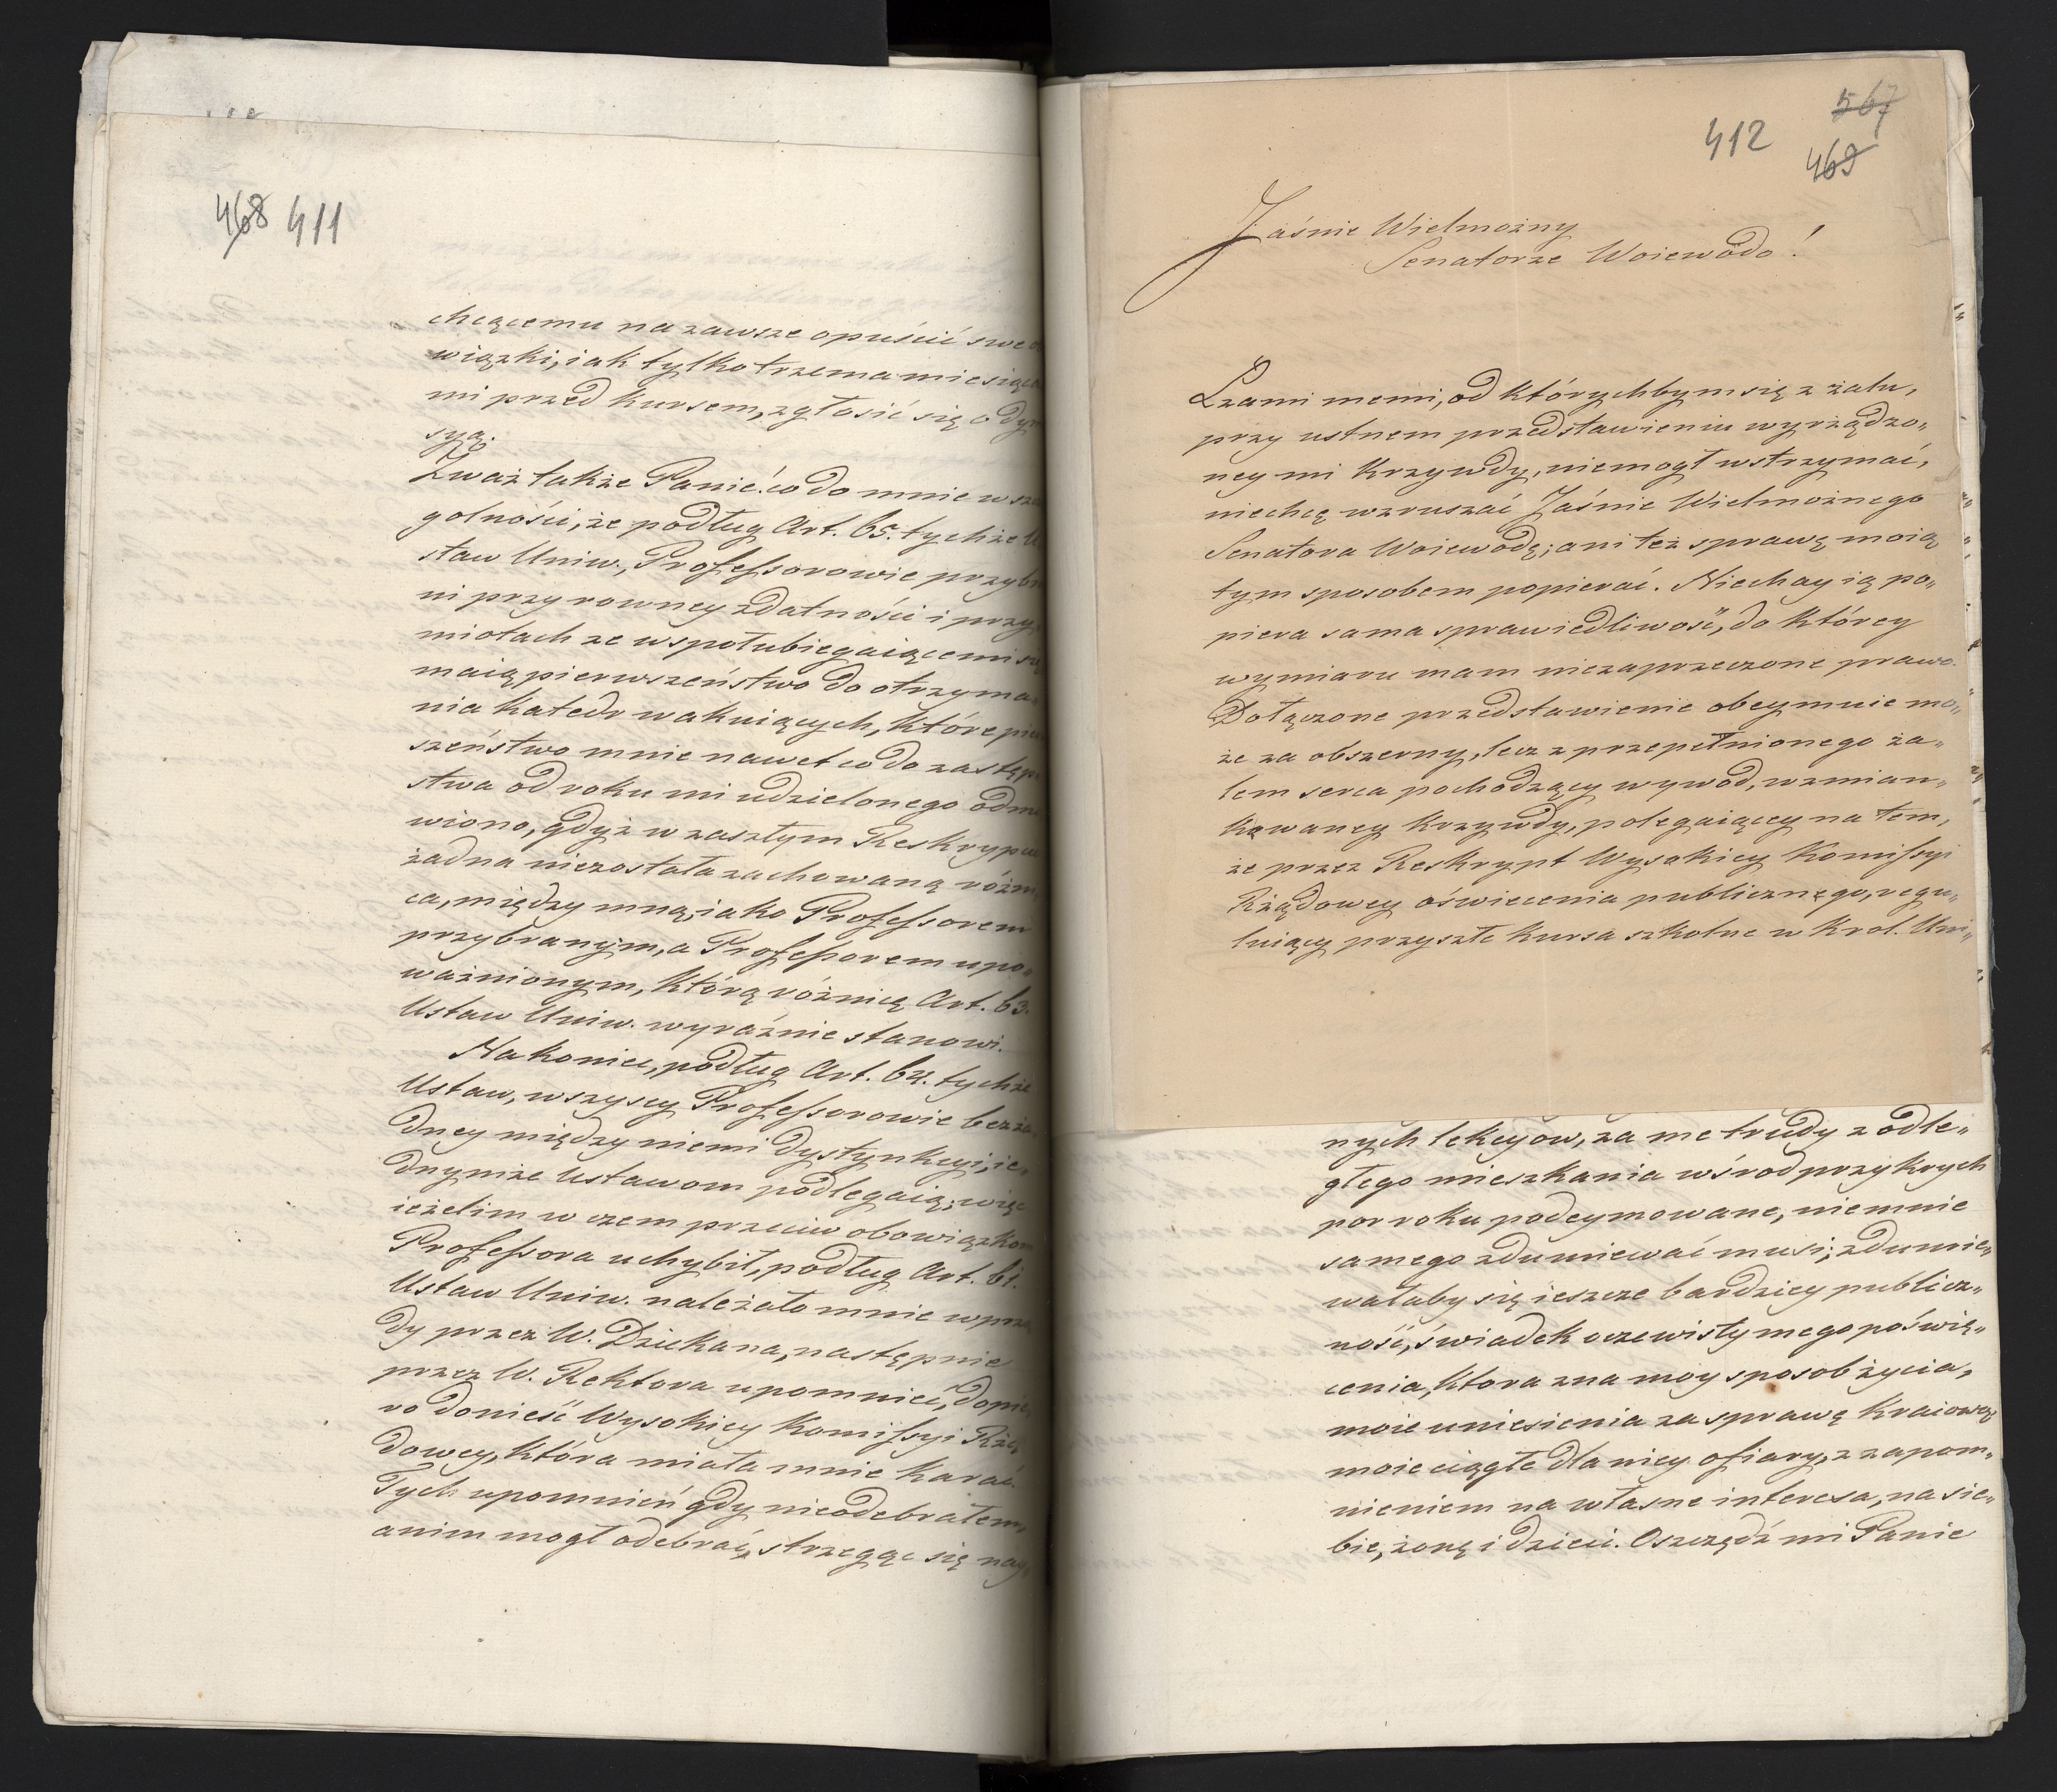 468 411
chcącemu na zawsze opuścić swe
wiązki, iak tylko trzema miesiąca
mi przed kursem, zgłosić się o dym
syą.
Zważ także Panie! co do mnie w szcze
golności, że podług Art. 65. tychże U
staw Uniw., Professorowie przybra
ni przy rowney zdatności i przy
miotach ze wspołubiegaiącemi się
maią pierwszeństwo do otrzyma„
nia Katedr wakuiących, które pier
szeństwo mnie nawet co do zastęp
stwa od roku mi udzielonego odmó
wiono, gdyż w zaszłym Reskrypcie
żadna niezostała zachowaną różni
ca, między mną, iako Professorem
przybranym, a Professorem upo„
ważnionym, którą różnicę Art. 63.
Ustaw Uniw. wyraźnie stanowi.
Nakoniec, podług Art. 64. tychże
Ustaw, wszyscy Professorowie bez ża
dney między niemi dystynkcyi, ie„
dnymże Ustawom podlegaią; więc
ieżelim w czem przeciw obowiązkom
Professora uchybił, podług Art. 61.
Ustaw Uniw. należało mnie wprzo
dy przez W. Dziekana, następnie
przez W. Rektora upomnieć, dopie
ro donieść Wysokiey Komissyi Rzą
dowey, która miała mnie karać.
Tych upomnień gdy nieodebrałem,
anim mogł odebrać, strzegąc się nay
567
412
469
Jaśnie Wielmożny
Senatorze Woiewodo!
Łzami memi, od którychbym się z żalu,
przy ustnem przedstawieniu wyrządzo„
ney mi krzywdy, niemogł wstrzymać,
niechcę wzruszać Jaśnie Wielmożnego
Senatora Woiewodę; ani też sprawę moią
tym sposobem popierać. Niechay ią po„
piera sama sprawiedliwość, do którey
wymiaru mam niezaprzeczone prawo.
Dołączone przedstawienie obeymuie mo„
że za obszerny, lecz z przepełnionego ża„
lem serca pochodzący wywód, wzmian„
kowaney krzywdy, polegaiącey na tem,
że przez Reskrypt Wysokiey Komissyi
Rządowey oświecenia publicznego, regu„
luiący przyszłe kursa szkolne w Krol. Uni„
nych lekcyow, za me trudy z odle„
głego mieszkania wśrod przykrych
por roku podeymowane, niemnie
samego zdumiewać musi; zdumie„
wałaby się ieszcze bardziey publicz„
ność, świadek oczewisty mego poświę„
cenia, ktora zna moy sposob życia,
moie uniesienia za sprawę kraiową
moie ciągłe dla niey ofiary, z zapom„
nieniem na własne interesa, na sie„
bie, żonę i dzieci. Oszczędź mi Panie